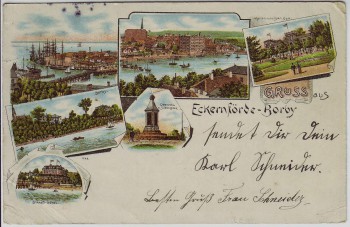 GRUSS aus
Eckernförde-Borby
sendet Dir Dein
Karl Schneider.
Besten Gruß Frau Schneider